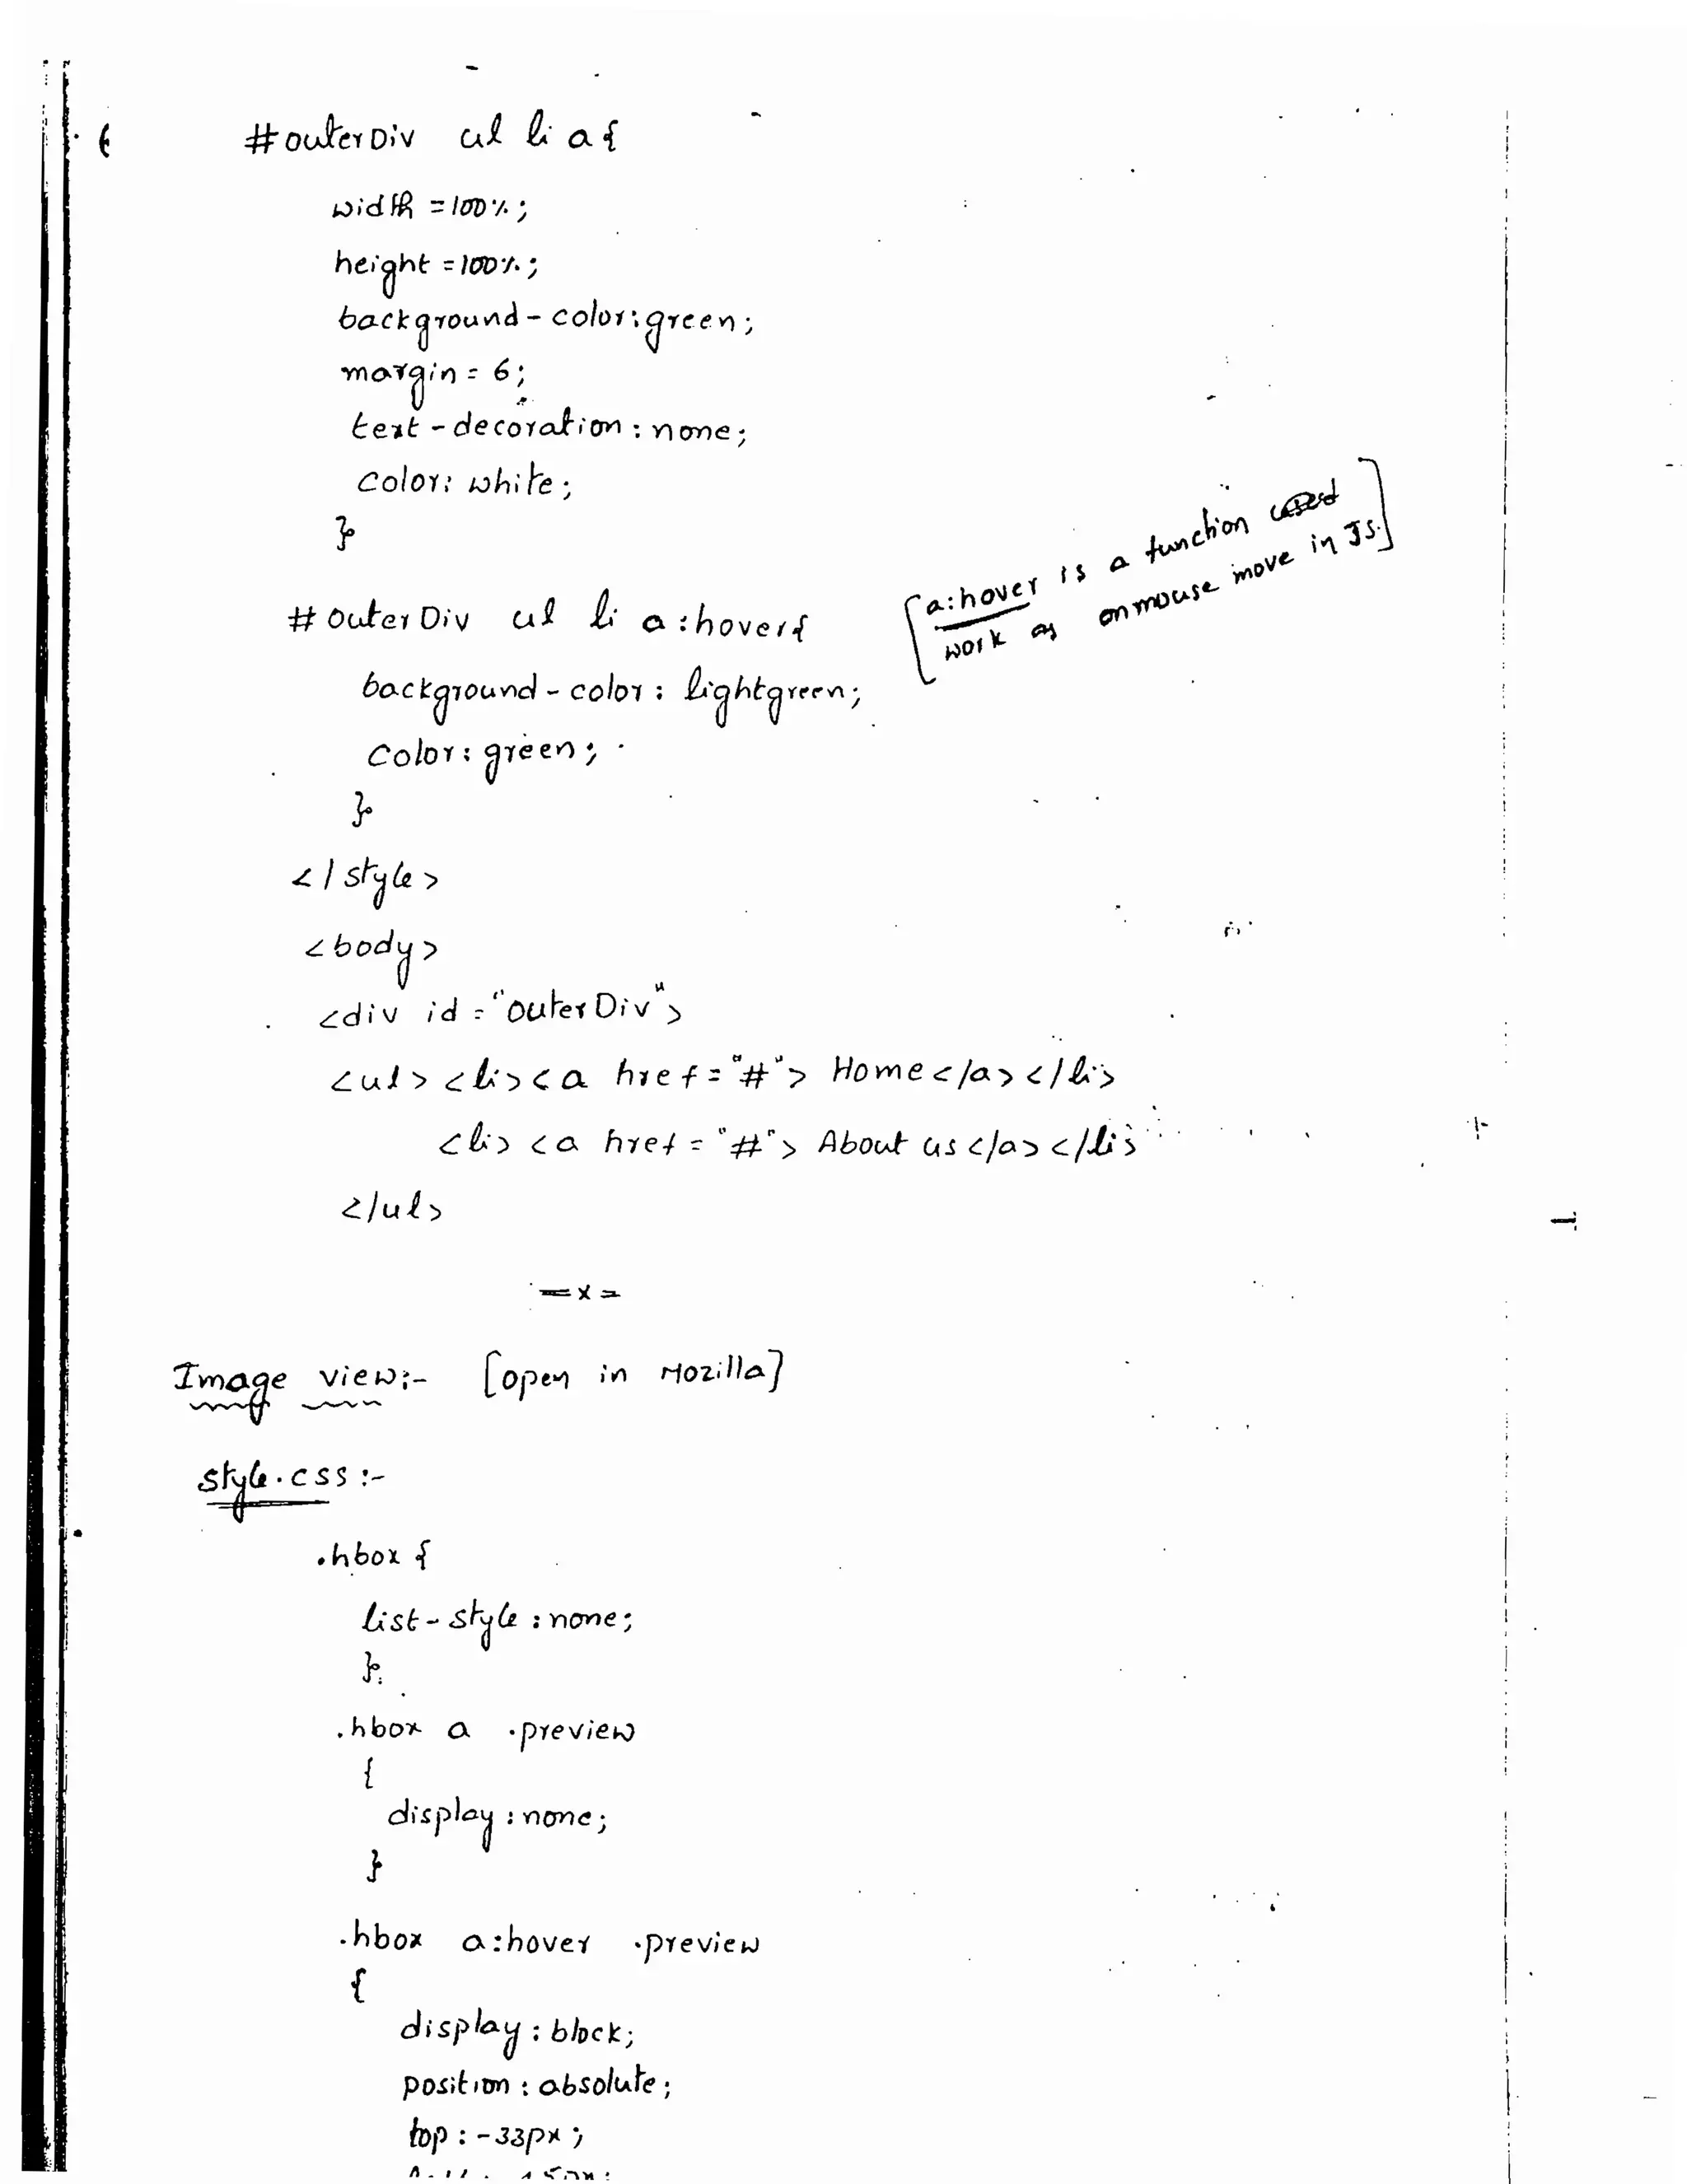 #outerDiv ul li a{
width =100%;
height =100%;
background-color:green;
margin = 6;
text-decoration:none;
color: white;
}
[a:hover is a function
work as onmouse move in JS.]
#outerDiv ul li a:hover{
background-color: lightgreen;
color: green;
}
</style>
<body>
<div id="outerDiv">
<ul><li><a href="#"> Home</a></li>
<li><a href="#"> About us</a></li>
</ul>
=x=
Image view:- [open in Mozilla]
style.css:-
.hbox {
list-style:none;
}
.hbox a .preview
{
display:none;
}
.hbox a:hover .preview
{
display:block;
position: absolute;
top: -33px;